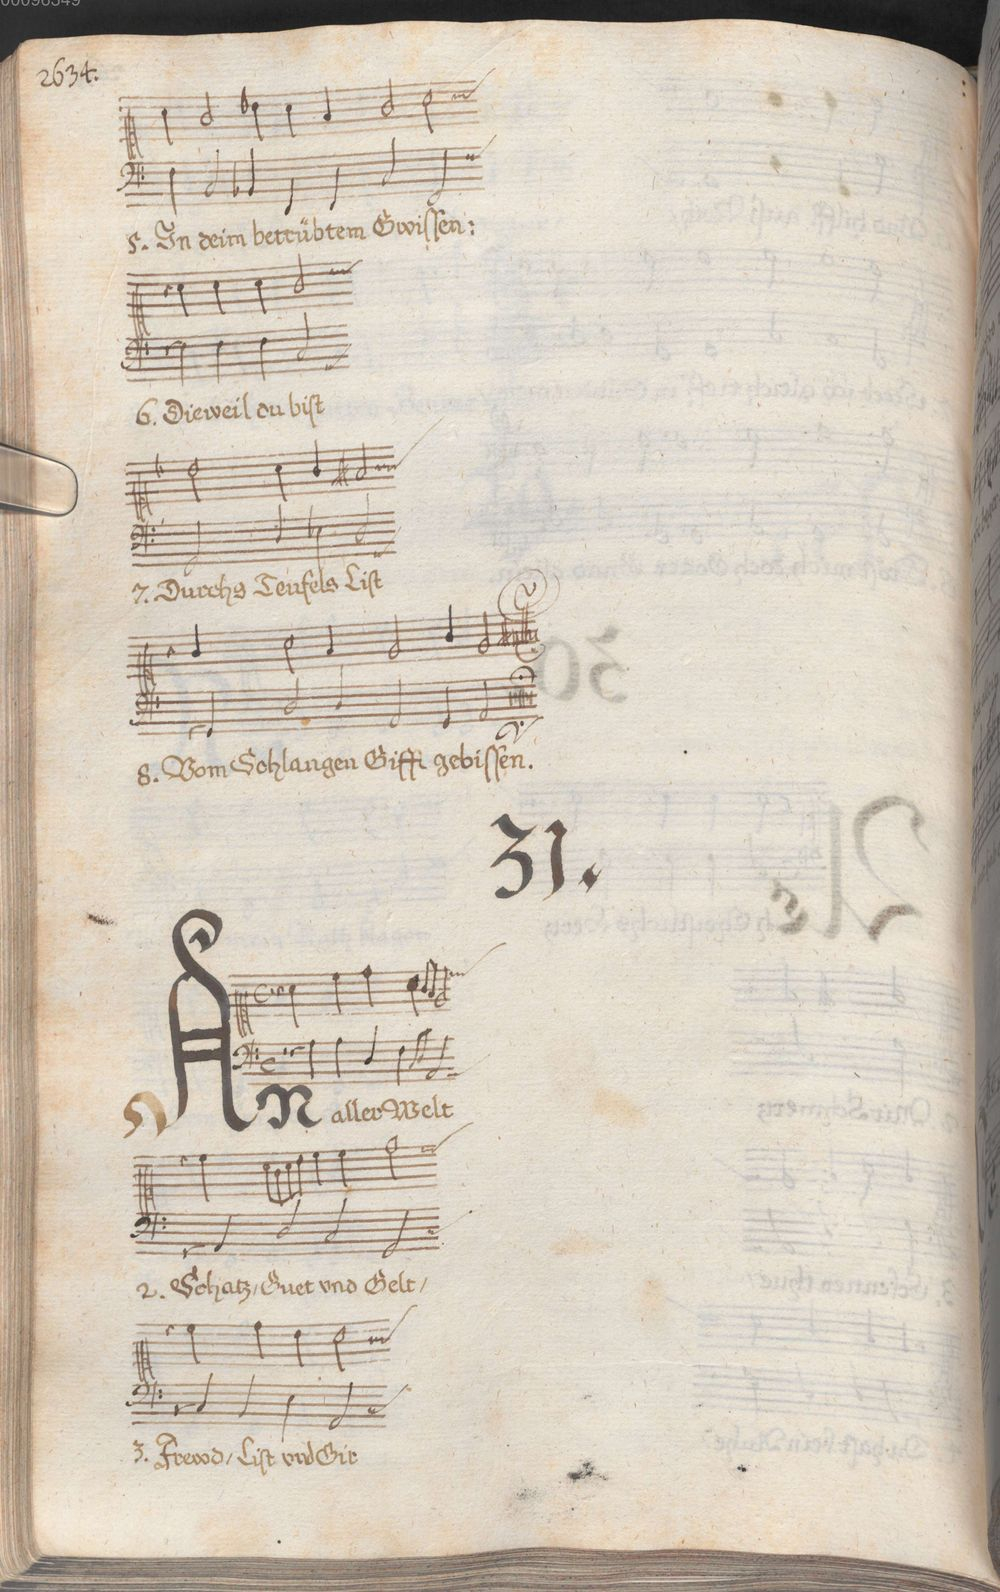 2634.
5. In deim betrübtem Gwissen:
6. Dieweil du bist
7. Durchs Teufels List
8. Vom Schlangen Gifft gebissen.
31.
AN aller Welt
2. Schatz/Guet vnd Gelt/
3. Frewd/List vnd Gir